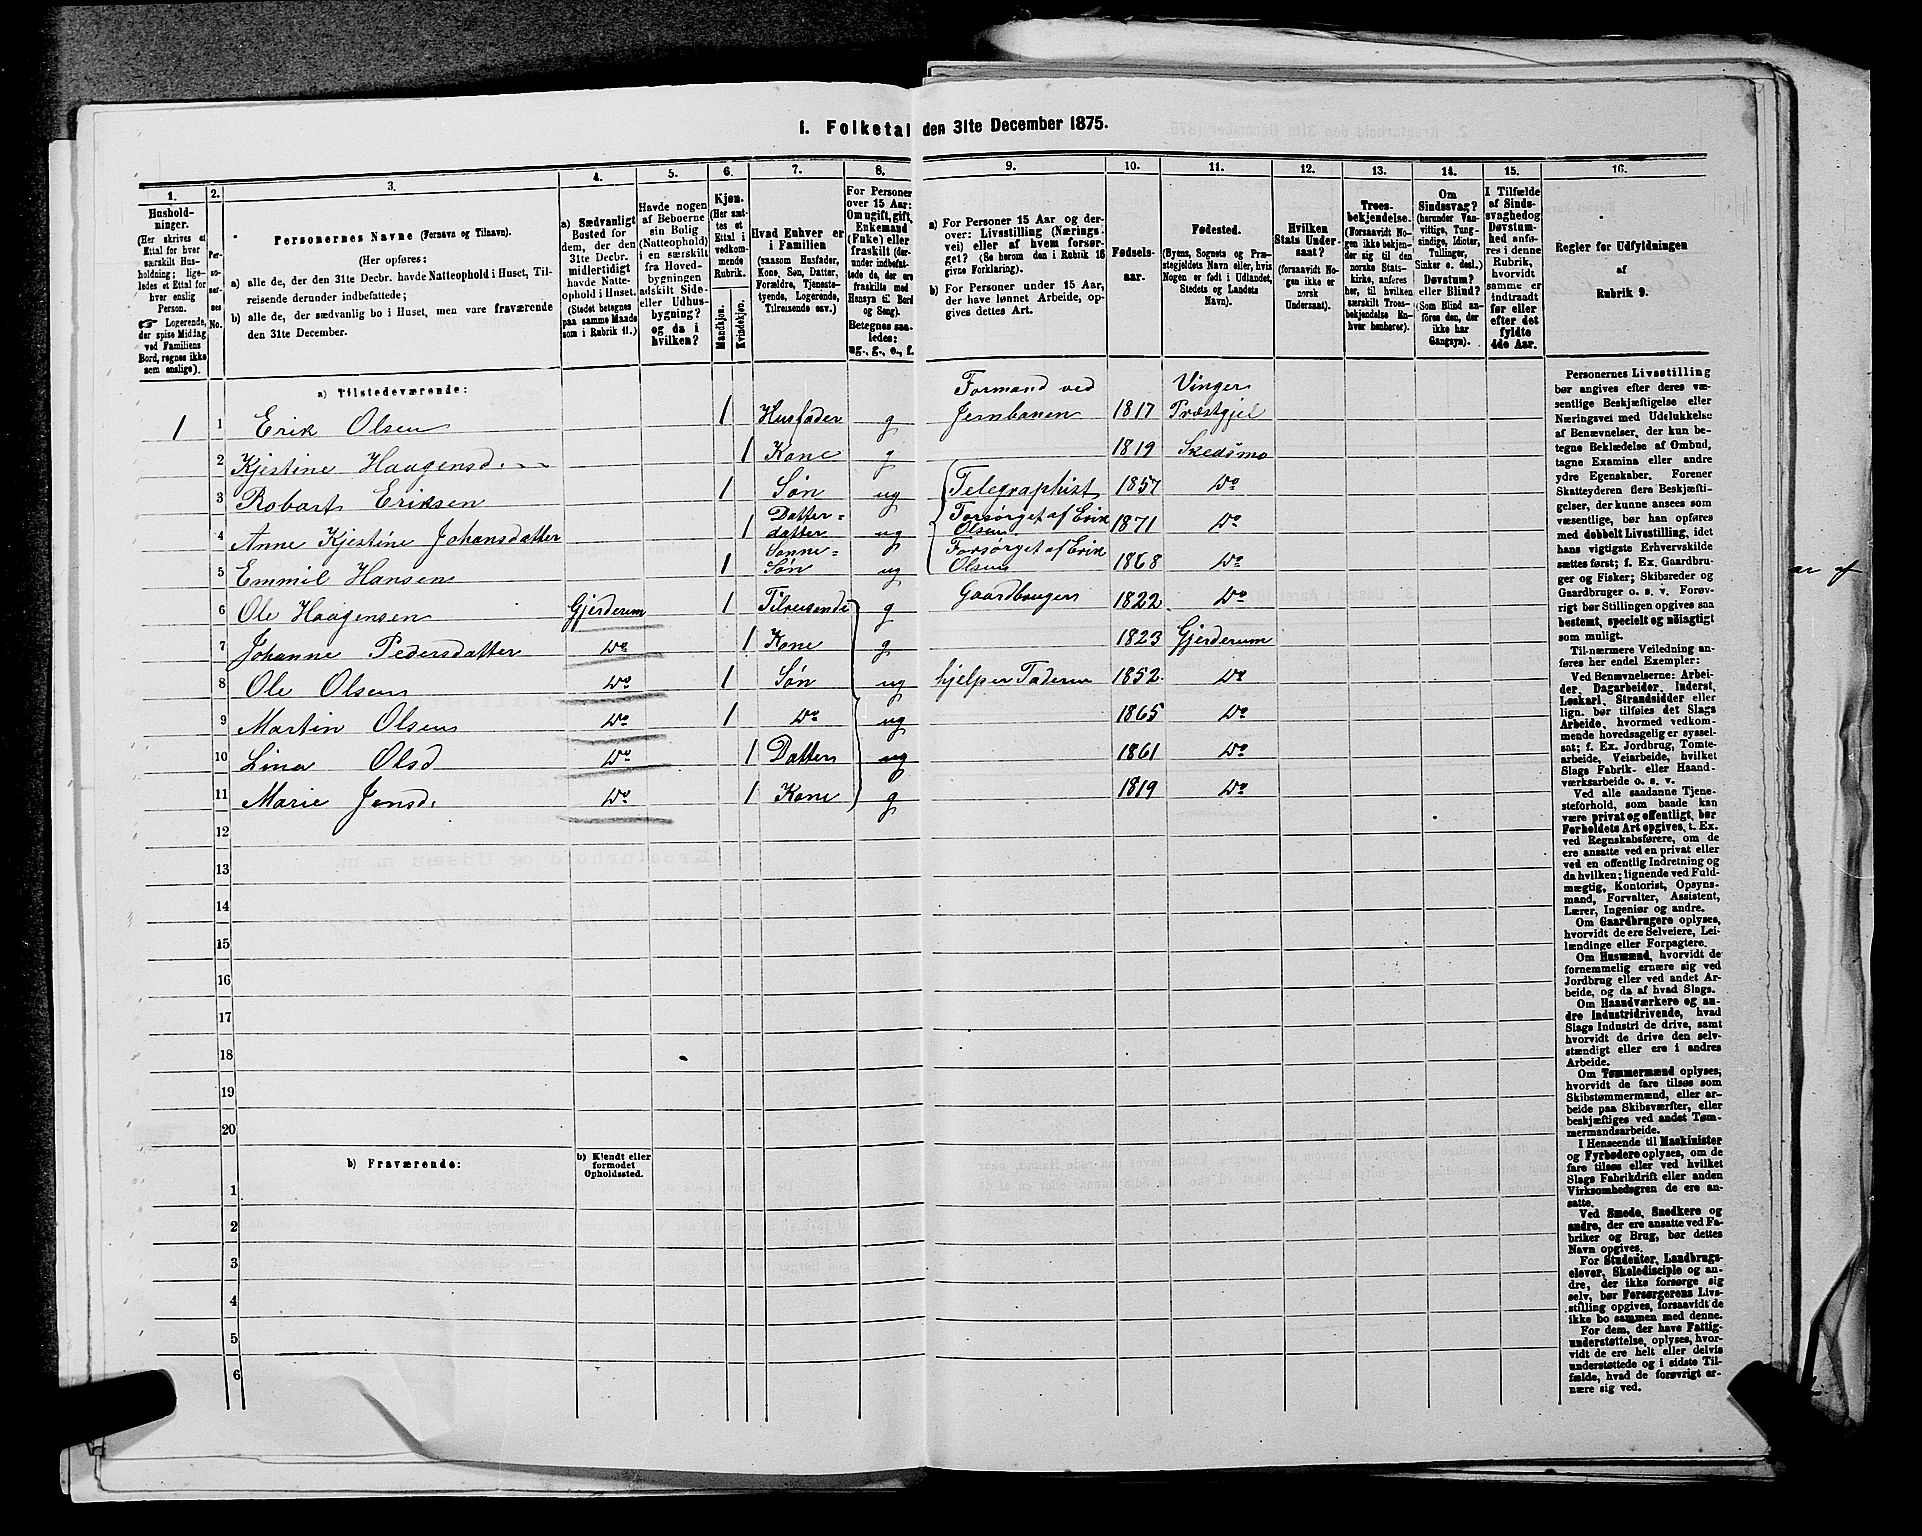 I. Folketal den 31te December 1875.
1.
Hushold-
ninger.
(Her skrives et
Ettal for hver
særskilt Hus-
holdning; lige-
ledes et Ettal for
hver enslig
Person.
☞ Logerende,
der spise Middag
ved Familiens
Bord, regnes ikke
som enslige).
2.
Per-
so-
ner-
nes
No.
3.
Personernes Navne (Fornavn og Tilnavn).
(Her opføres:
a) alle de, der den 31te Decbr. havde Natteophold i Huset, Til-
reisende derunder indbefattede;
b) alle de, der sædvanlig bo i Huset, men vare fraværende
den 31te December.
4.
a) Sædvanligt
Bosted for
dem, der den
31te Decbr.
midlertidigt
havde Natte-
ophold i Huset.
(Stedet betegnes
paa samme Maade
som i Rubrik 11.)
5.
Havde nogen
af Beboerne
sin Bolig
(Natteophold)
i en særskilt
fra Hoved-
bygningen
adskilt Side-
eller Udhus-
bygning?
og da i
hvilken?
6.
Kjøn.
(Her sæt-
tes et
Ettal i
vedkom-
mende
Rubrik.
Mandkjøn.
Kvindekjøn.
7.
Hvad Enhver er
i Familien
(saasom Husfader,
Kone, Søn, Datter,
Forældre, Tjeneste-
tyende, Logerende,
Tilreisende osv.)
8.
For Personer
over 15 Aar:
Om ugift, gift,
Enkemand
(Enke) eller
fraskilt (der-
under indbefat-
tede de, der ere
fraskilte med
Hensyn til Bord
og Seng).
Betegnes saa-
ledes:
ug., g., e., f.
9.
a) For Personer 15 Aar og der-
over: Livsstilling (Nærings-
vei) eller af hvem forsør-
get? (Se herom den i Rubrik 16
givne Forklaring).
b) For Personer under 15 Aar,
der have lønnet Arbeide, op-
gives dettes Art.
10.
Fødsels-
aar.
11.
Fødested.
(Byens, Sognets og Præ-
stegjeldets Navn eller, hvis
Nogen er født i Udlandet,
Stedets og Landets
Navn).
12.
Hvilken
Stats Under-
saat?
(forsaavidt No-
gen ikke er
norsk
Undersaat).
13.
Troes-
bekjendelse.
(Forsaavidt No-
gen ikke bekjen-
der sig til den
norske Stats-
kirke, anføres
her, til hvilken
særskilt Troes-
bekjendelse En-
hver henhører).
14.
Om
Sindssvag?
(herunder Van-
vittige, Tung-
sindige, Idioter,
Tullinger,
Sinker o. desl.)
Døvstum?
eller Blind?
(Som Blind an-
føres den, der
ikke har
Gangsyn).
15.
I Tilfælde
af Sinds-
svaghed og
Døvstum-
hed anfø-
res i denne
Rubrik,
hvorvidt
samme er
indtraadt
før eller
efter det
fyldte
4de Aar.
16.
Regler for Udfyldningen
af
Rubrik 9.
a) Tilstedeværende:
1 1 Erik Olsen 1 Husfader g Formand ved Jernbanen 1817 Vinger Præstgjel
2 Kjestine Haagensd. 1 Kone g 1819 Skedsmo
3 Robart Eriksen 1 Søn ug Telegraphist 1857 Do
4 Anne Kjestine Johansdatter 1 Datter=datter ug Forsørget af Erik Olsen 1871 Do
5 Emmil Hansen 1 Sønne=Søn ug Forsørget af Erik Olsen 1868 Do
6 Ole Haagensen Gjerderum 1 Tilreisende g Gaardbruger 1822 Do
7 Johanne Pedersdatter Do 1 Kone g 1823 Gjerderum
8 Ole Olsen Do 1 Søn ug hjelper Faderen 1852 Do
9 Martin Olsen Do 1 Do ug 1865 Do
10 Lina Olsd Do 1 Datter ug 1861 Do
11 Marie Jensd. Do 1 Kone g 1819 Do
12
13
14
15
16
17
18
19
20
b) Fraværende:
b) Kjendt eller
formodet
Opholdssted.
1
2
3
4
5
6
Personernes Livsstilling
bør angives efter deres væ-
sentlige Beskjæftigelse eller
Næringsvei med Udelukkelse
af Benævnelser, der kun be-
tegne Beklædelse af Ombud,
tagne Examina eller andre
ydre Egenskaber. Forener
Skatteyderen flere Beskjæfti-
gelser, der kunne ansees som
væsentlige, bør han opføres
med dobbelt Livsstilling, idet
hans vigtigste Erhvervskilde
sættes først; f. Ex. Gaardbru-
ger og Fisker; Skibsreder og
Gaardbruger o. s. v. Forøv-
rigt bør Stillingen opgives saa
bestemt, specielt og nøiagtigt
som muligt.
Til nærmere Veiledning an-
føres her endel Exempler:
Ved Benævnelserne: Arbei-
der, Dagarbeider, Inderst,
Løskarl, Strandsidder eller
lign. bør tilføies det Slags
Arbeide, hvormed vedkom-
mende hovedsagelig er syssel-
sat; f. Ex. Jordbrug, Tomte-
arbeide, Veiarbeide, hvilket
Slags Fabrik- eller Haand-
værksarbeide o. s. v.
Ved alle saadanne Tjene-
steforhold, som baade kan
være privat og offentligt, bør
Forholdets Art opgives, t. Ex.
ved Regnskabsførere, om de
ere ansatte ved en privat eller
ved en offentlig Indretning og
da hvilken; lignende ved Fuld-
mægtig, Kontorist, Opsyns-
mand, Forvalter, Assistent,
Lærer, Ingeniør og andre.
Om Gaardbrugere oplyses,
hvorvidt de ere Selveiere, Lei-
lændinge eller Forpagtere.
Om Husmænd, hvorvidt de
fornemmelig ernære sig ved
Jordbrug eller ved andet Ar-
beide, og da af hvad Slags.
Om Haandværkere og an-
dre Industridrivende, hvad
Slags Industri de drive, samt
hvorvidt de drive den selv-
stændigt eller ere i andres
Arbeide.
Om Tømmermænd oplyses,
hvorvidt de fare tilsøs som
Skibstømmermænd, eller ar-
beide paa Skibsværfter, eller
beskjæftiges ved andet Tøm-
mermandsarbeide.
I Henseende til Maskinister
og Fyrbødere oplyses, om de
fare tilsøs eller ved hvilket
Slags Fabrikdrift eller anden
Virksomhedsgren de ere an-
satte.
Ved Smede, Snedkere og
andre, der ere ansatte ved Fa-
briker og Brug, bør dettes
Navn opgives.
For Studenter, Landbrugs-
elever, Skoledisciple og an-
dre, der ikke forsørge sig
selv, bør Forsørgerens Livs-
stilling opgives, forsaavidt de
ikke bo sammen med denne.
For dem, der have Fattig-
understøttelse, oplyses, hvor-
vidt de ere helt eller delvis
understøttede og i sidste Til-
fælde, hvad de forøvrigt er-
nære sig ved.